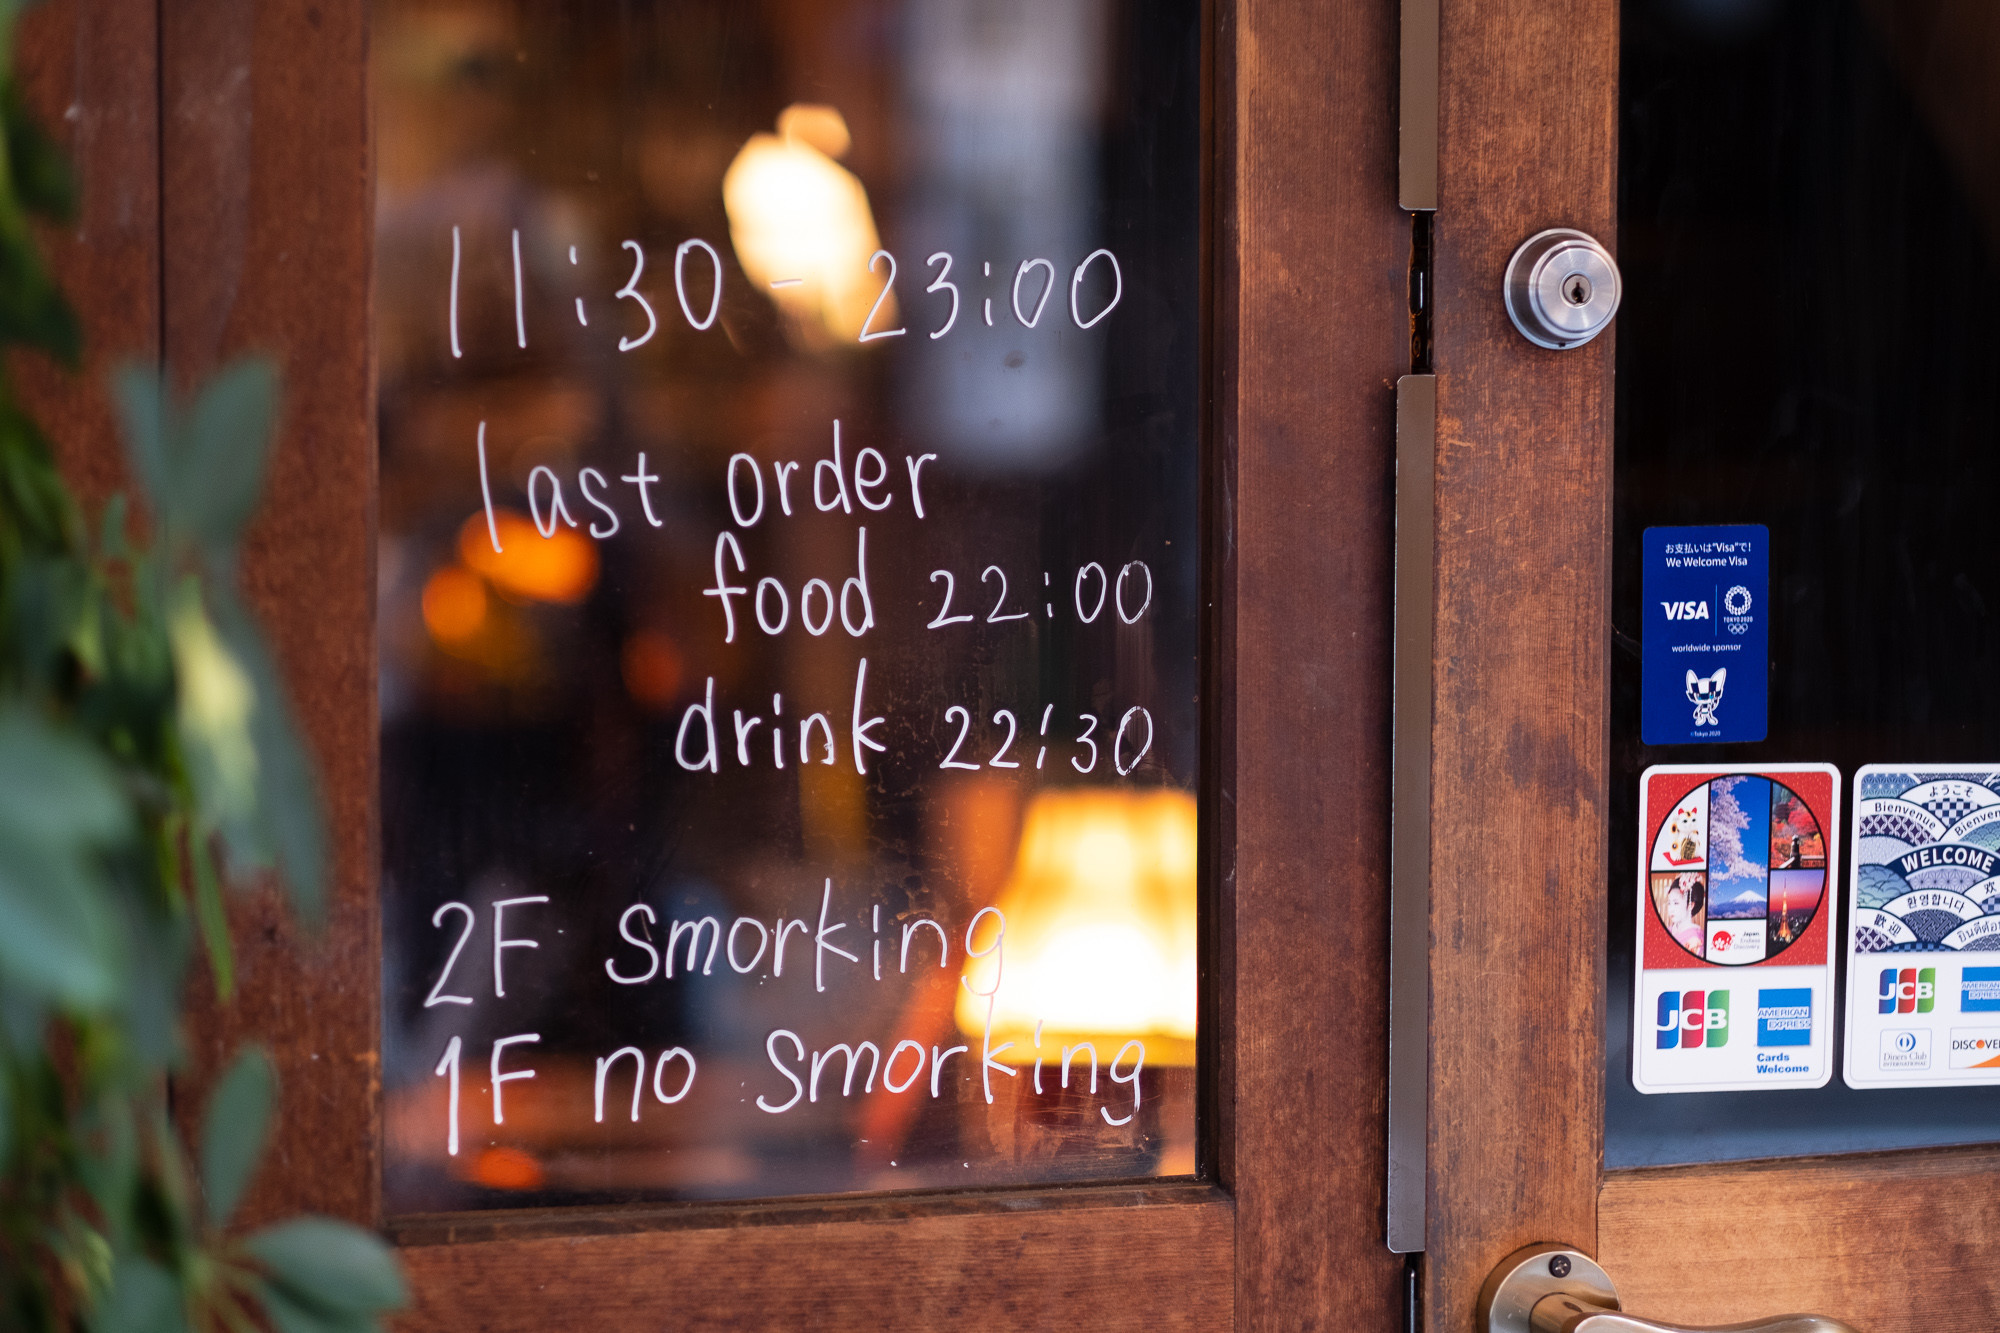 11:30 - 23:00
last order
food 22:00
drink 22:30
2F smorking
1F no smorking
お支払いは"Visa"で!
We Welcome Visa
VISA
TOKYO 2020
worldwide sponsor
©Tokyo 2020
Japan.
Endless
Discovery.
JCB
AMERICAN
EXPRESS
Cards
Welcome
ようこそ
Bienvenue
WELCOME
환영합니다
欢
歓迎
JCB
AMERICAN
EXPRESS
Diners Club
INTERNATIONAL